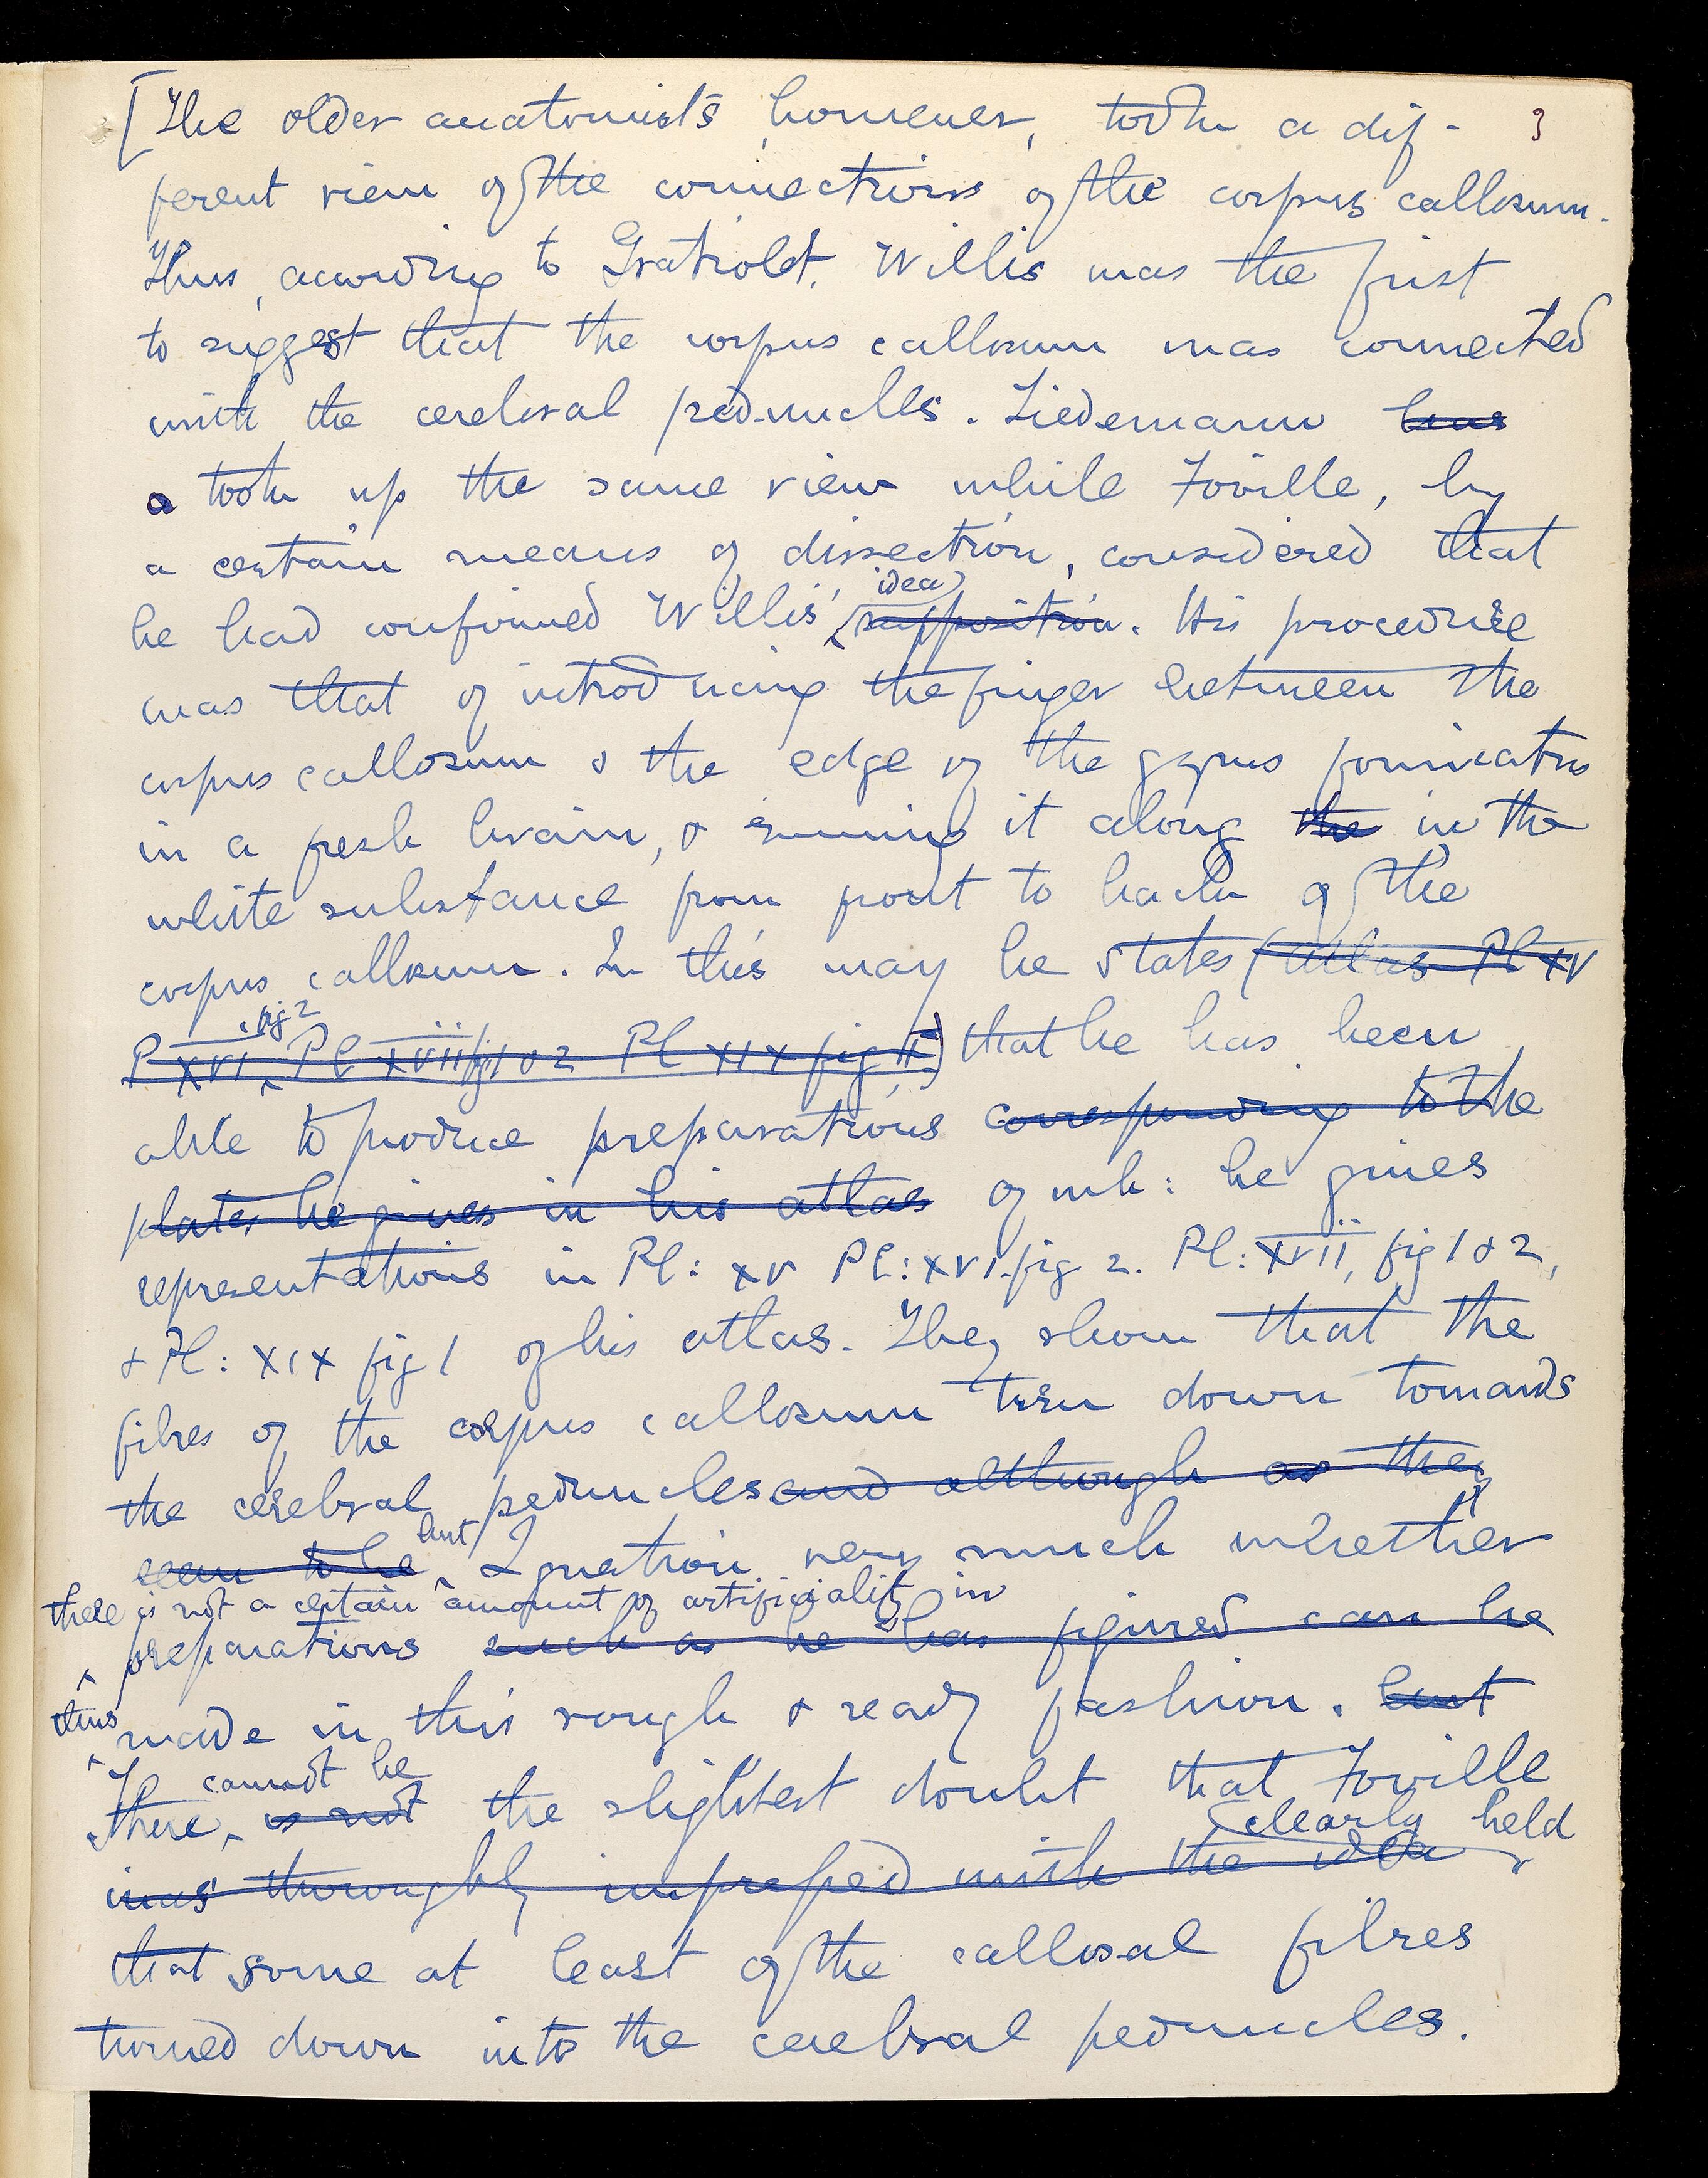 [The older anatomists, however, took a dif- 3
ferent view of the connections of the corpus callosum.
Thus, according to Gratiolet, Willis was the first
to suggest that the corpus callosum was connected
with the cerebral peduncles. Tiedemann has
a took up the same view while Foville, by
a certain means of dissection, considered that
idea
he had confirmed Willis' supposition. His procedure
was that of introducing the finger between the
corpus callosum & the edge of the gyrus fornicatus
in a fresh brain, & running it along the in the
white substance from front to back of the
corpus callosum. In this way he states (Atlas Pl XV
fig 2
P XVI, Pl XVII fig 1 & 2 Pl XIX fig 1) that he has been
able to produce preparations corresponding to the
plates he gives in his atlas of wh: he gives
representations in Pl: XV Pl: XVI fig 2. Pl: XVII, fig 1 & 2,
& Pl: XIX fig 1 of his atlas. They show that the
fibres of the corpus callosum turn down towards
the cerebral peduncles and although as they
seem to be but I question very much whether
there is not a certain amount of artificiality in
preparations such as he has figured can be
thus
made in this rough & ready fashion. but
cannot be
There is not the slightest doubt that Foville
clearly held
was thoroughly impressed with the idea
that some at least of the callosal fibres
turned down into the cerebral peduncles.